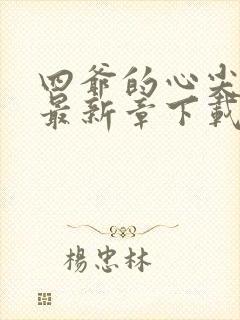 四爺的心尖
最新章下載
楊忠林